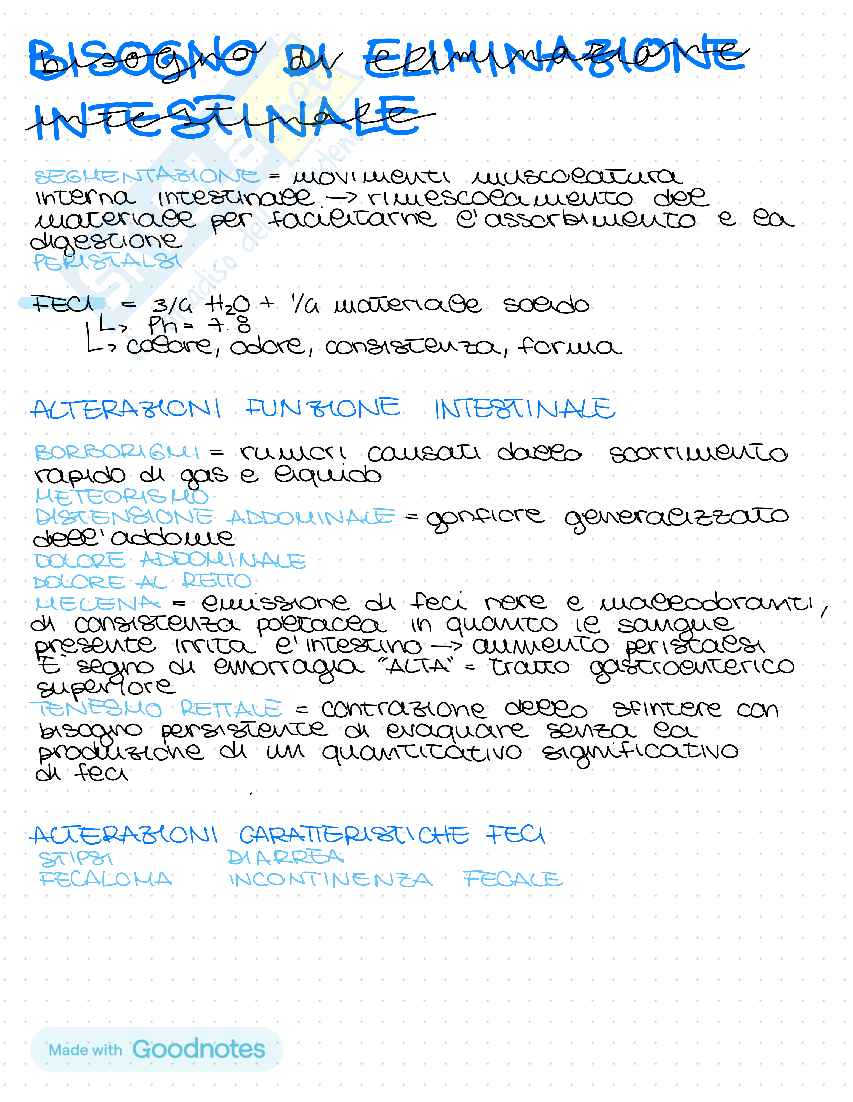 BISOGNO DI ELIMINAZIONE
INTESTINALE
SEGMENTAZIONE = movimenti muscolatura
interna intestinale → rimescolamento del
materiale per facilitarne l'assorbimento e la
digestione
PERISTALSI
FECI = 3/4 H₂O + 1/4 materiale solido
↳ Ph = 7.8
↳ colore, odore, consistenza, forma
ALTERAZIONI FUNZIONE INTESTINALE
BORBORIGMI = rumori causati dallo scorrimento
rapido di gas e liquido
METEORISMO
DISTENSIONE ADDOMINALE = gonfiore generalizzato
dell'addome
DOLORE ADDOMINALE
DOLORE AL RETTO
MELENA = emissione di feci nere e malleodoranti,
di consistenza poltacea in quanto le sangue
presente irrita l'intestino → aumento peristalsi
È segno di emorragia "ALTA" = tratto gastroenterico
superiore
TENESMO RETTALE = contrazione dello sfintere con
bisogno persistente di evaquare senza la
produzione di un quantitativo significativo
di feci
ALTERAZIONI CARATTERISTICHE FECI
STIPSI DIARREA
FECALOMA INCONTINENZA FECALE
Made with Goodnotes